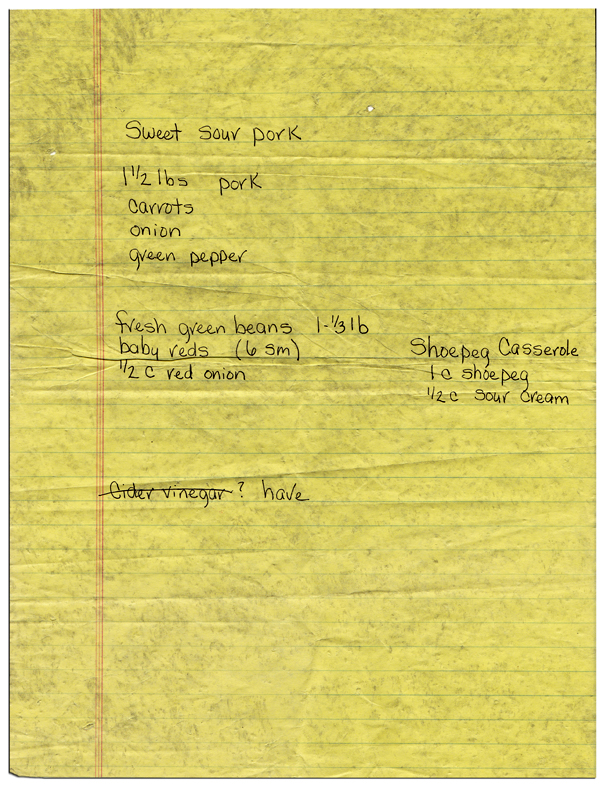 Sweet sour pork
1 1/2 lbs pork
carrots
onion
green pepper
fresh green beans 1-1/3 lb
baby reds (6 sm)
1/2 c red onion
Shoepeg Casserole
1 c shoepeg
1/2 c sour cream
Cider vinegar ? have